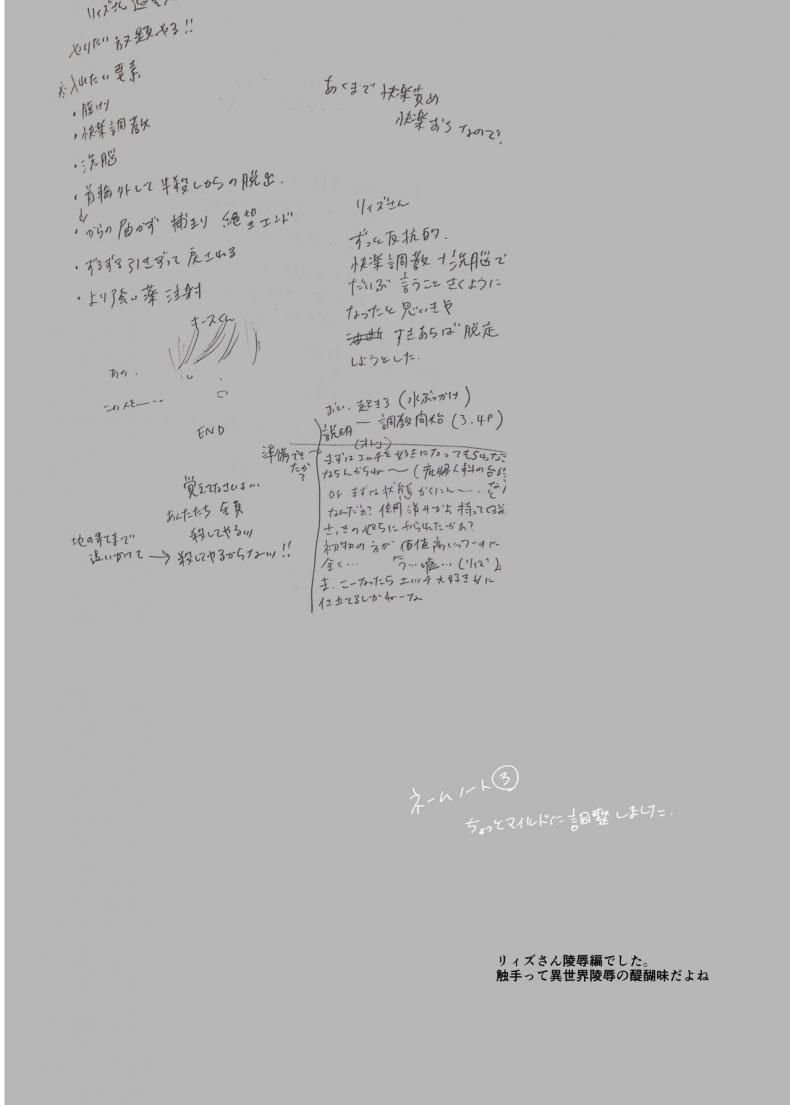 リィズさん
やりたい放題やる!!
※入れたい要素
・腹パン
・快楽調教
・洗脳
・首輪外して半殺しからの脱出.
・からの届かず 捕まり 絶望エンド
・ずるずる引きずって戻される
・より強い薬注射
あの.
この人を…
END
覚えてなさいよ…
あんたたち全員
殺してやるッ
地の果てまで
追いかけて→殺してやるからなッ!!
あくまで快楽責め
快楽おちなので!
リィズさん
ずっと反抗的.
快楽調教+洗脳で
だいぶ言うこときくように
なったと思いきや
すきあらば脱走
しようとした.
おい、起きろ(水ぶっかけ)
説明 ― 調教開始(3.4P)
準備できたか?
まずはエッチを好きになってもらわな
ならんからね〜(産婦人科の台
or まずは状態かくにん〜.
なんだぁ?使用済みかよ 持ってくる前
さっきのやろうにやられたかぁ?
初物の方が価値高いッつーのに
全く… う…嘘…(リィズ)
ま、こーなったらエッチ大好き女に
仕立てるしかねーな
ネームノート③
ちょっとマイルドに調整しました.
リィズさん陵辱編でした。
触手って異世界陵辱の醍醐味だよね